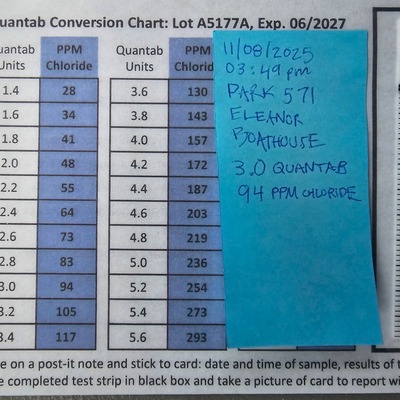 Quantab Conversion Chart: Lot A5177A, Exp. 06/2027
Quantab Units PPM Chloride Quantab Units PPM Chloride
1.4 28 3.6 130
1.6 34 3.8 143
1.8 41 4.0 157
2.0 48 4.2 172
2.2 55 4.4 187
2.4 64 4.6 203
2.6 73 4.8 219
2.8 83 5.0 236
3.0 94 5.2 254
3.2 105 5.4 273
3.4 117 5.6 293
11/08/2025
03:49 pm
PARK 571
ELEANOR
BOATHOUSE
3.0 QUANTAB
94 PPM CHLORIDE
e on a post-it note and stick to card: date and time of sample, results of t
e completed test strip in black box and take a picture of card to report wi